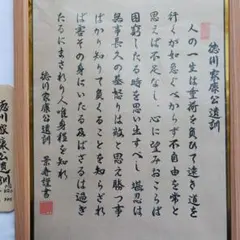 徳川家康公遺訓
人の一生は重荷を負ひて遠き道を
行くが如し急ぐべからず不自由を常と
思えば不足なし心に望みおこらば
困窮したる時を思い出すべし堪忍は
無事長久の基怒りは敵と思え勝つ事
ばかり知りて負くることを知らざれ
ば害その身にいたる
及ばざるは過ぎ
たるにまされり人唯身程を知れ
徳川家康公遺訓
徳川家康公遺訓